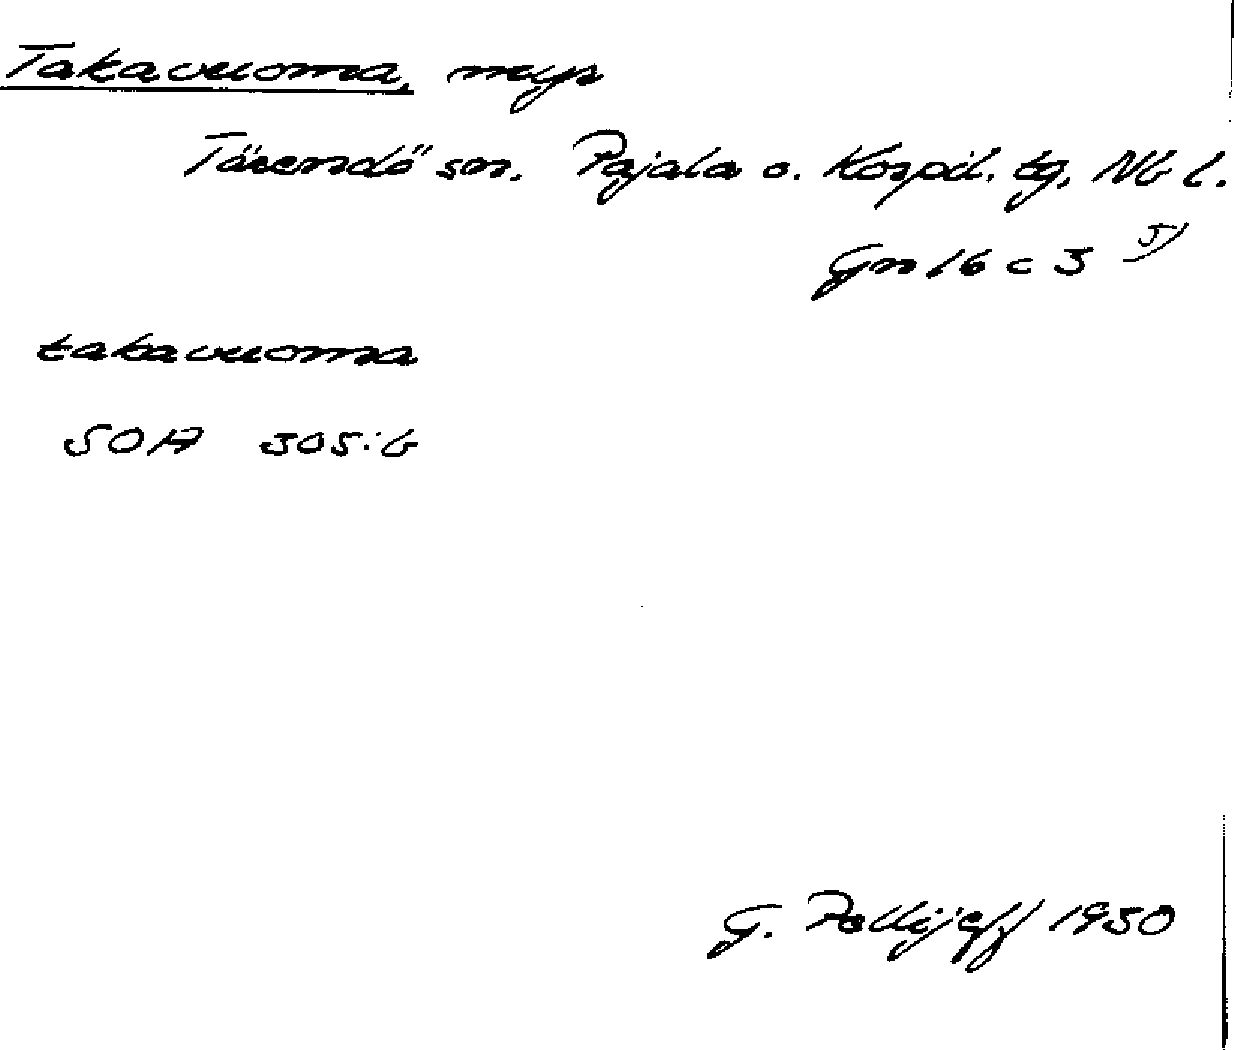 Takavuoma, myr
Tärendö sn. Pajala o. Korpil. tg, Nb l.
Gn 16 c 3 5)
takavuoma
SOA 305:6
G. Pellijeff 1950